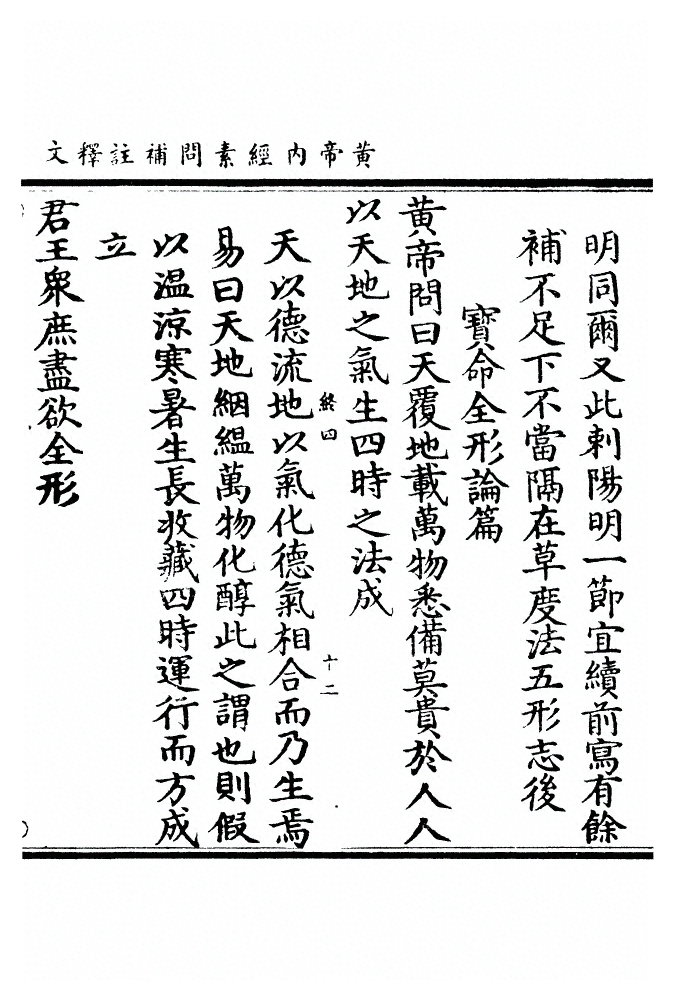 黃帝內經素問補註釋文
明同爾又此刺陽明一節宜續前寫有餘
補不足下不當隔在草度法五形志後
寶命全形論篇
黃帝問曰天覆地載萬物悉備莫貴於人人
以天地之氣生四時之法成
終四
十二
天以德流地以氣化德氣相合而乃生焉
易曰天地絪緼萬物化醇此之謂也則假
以温涼寒暑生長收藏四時運行而方成
立
君王衆庶盡欲全形